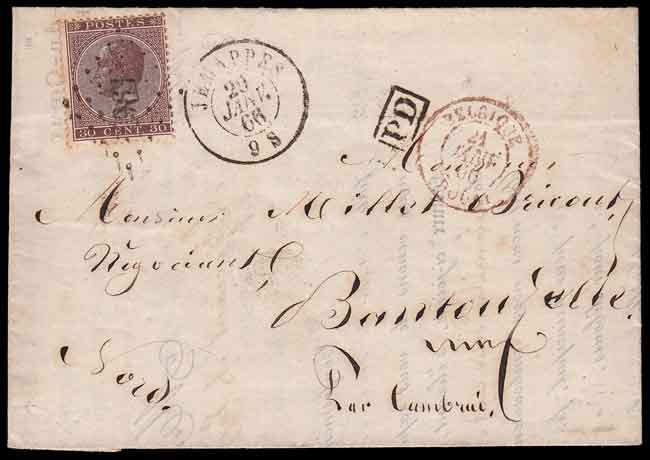 POSTES
30 CENT. 30
JEMAPPES
20
JANV.
66
9 S
PD
BELGIQUE
21
JANV
66
Monsieur
Monsieur Millet Bricout,
Négociant,
Bantouzelle,
Nord,
Par Cambrai,